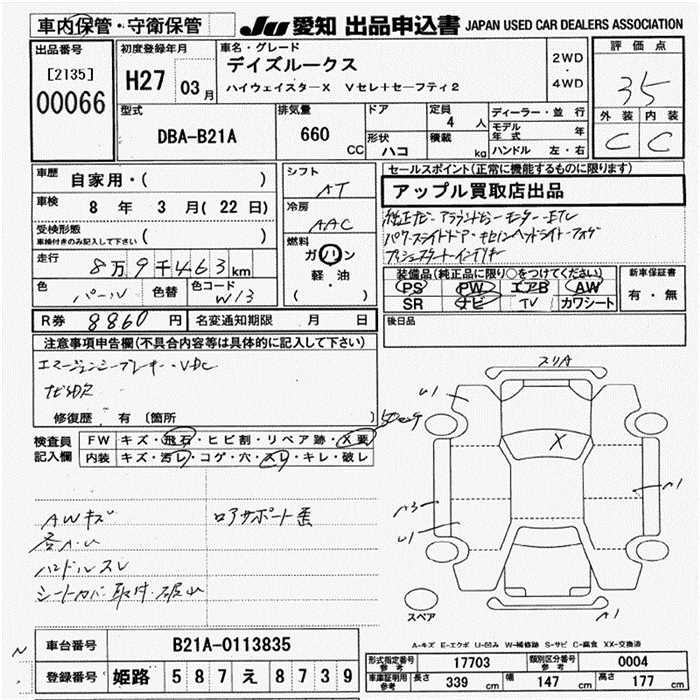 車内保管・守衛保管
JU 愛知 出品申込書 JAPAN USED CAR DEALERS ASSOCIATION
出品番号
[2135]
00066
初度登録年月
H27 03月
車名・グレード
デイズルークス
ハイウェイスターX Vセレ+セーフティ2
2WD
・
4WD
評価点
3.5
外装 内装
C C
型式
DBA-B21A
排気量
660 CC
ドア
形状
ハコ
定員
4 人
積載
kg
ディーラー・並行
モデル年式 年
ハンドル 左・右
車歴
自家用・( )
車検
8 年 3 月 ( 22 日)
受検形態
車検付きのみ記入して下さい ( )
走行
8万9千463km
色
パール
色替
色コード
W13
シフト
AT
冷房
AAC
燃料
ガソリン
軽・油
( )
セールスポイント(正常に機能するものに限ります)
アップル買取店出品
純正ナビ・アラウンドビューモニター・ETC
パワースライドドア・キセノンヘッドライト・フォグ
プッシュスタート・インテリキー
装備品(純正品に限り○をつけてください)
PS PW エアB AW
SR ナビ TV カワシート
新車保証書
有・無
後日品
R券 8860 円
名変通知期限 月 日
注意事項申告欄(不具合内容等は具体的に記入して下さい)
エマージェンシーブレーキ・VDC
ナビSDR
修復歴 有 〔箇所 〕
検査員
記入欄
FW キズ・飛石・ヒビ割・リペア跡・X要
内装 キズ・汚レ・コゲ・穴・スレ・キレ・破レ
AWキズ
ロアサポート歪
各A・U
ハンドルスレ
シートカバー取付
スリA
U1
X
A1
A3
U1
A1
スペア
A-キズ E-エクボ U-凹み W-補修跡 S-サビ C-腐食 XX-交換済
車台番号
B21A-0113835
登録番号
姫路 587 え 8739
形式指定番号
参考
17703
類別区分番号
参考
0004
車庫証明用
参考
長さ 339 cm
幅 147 cm
高さ 177 cm